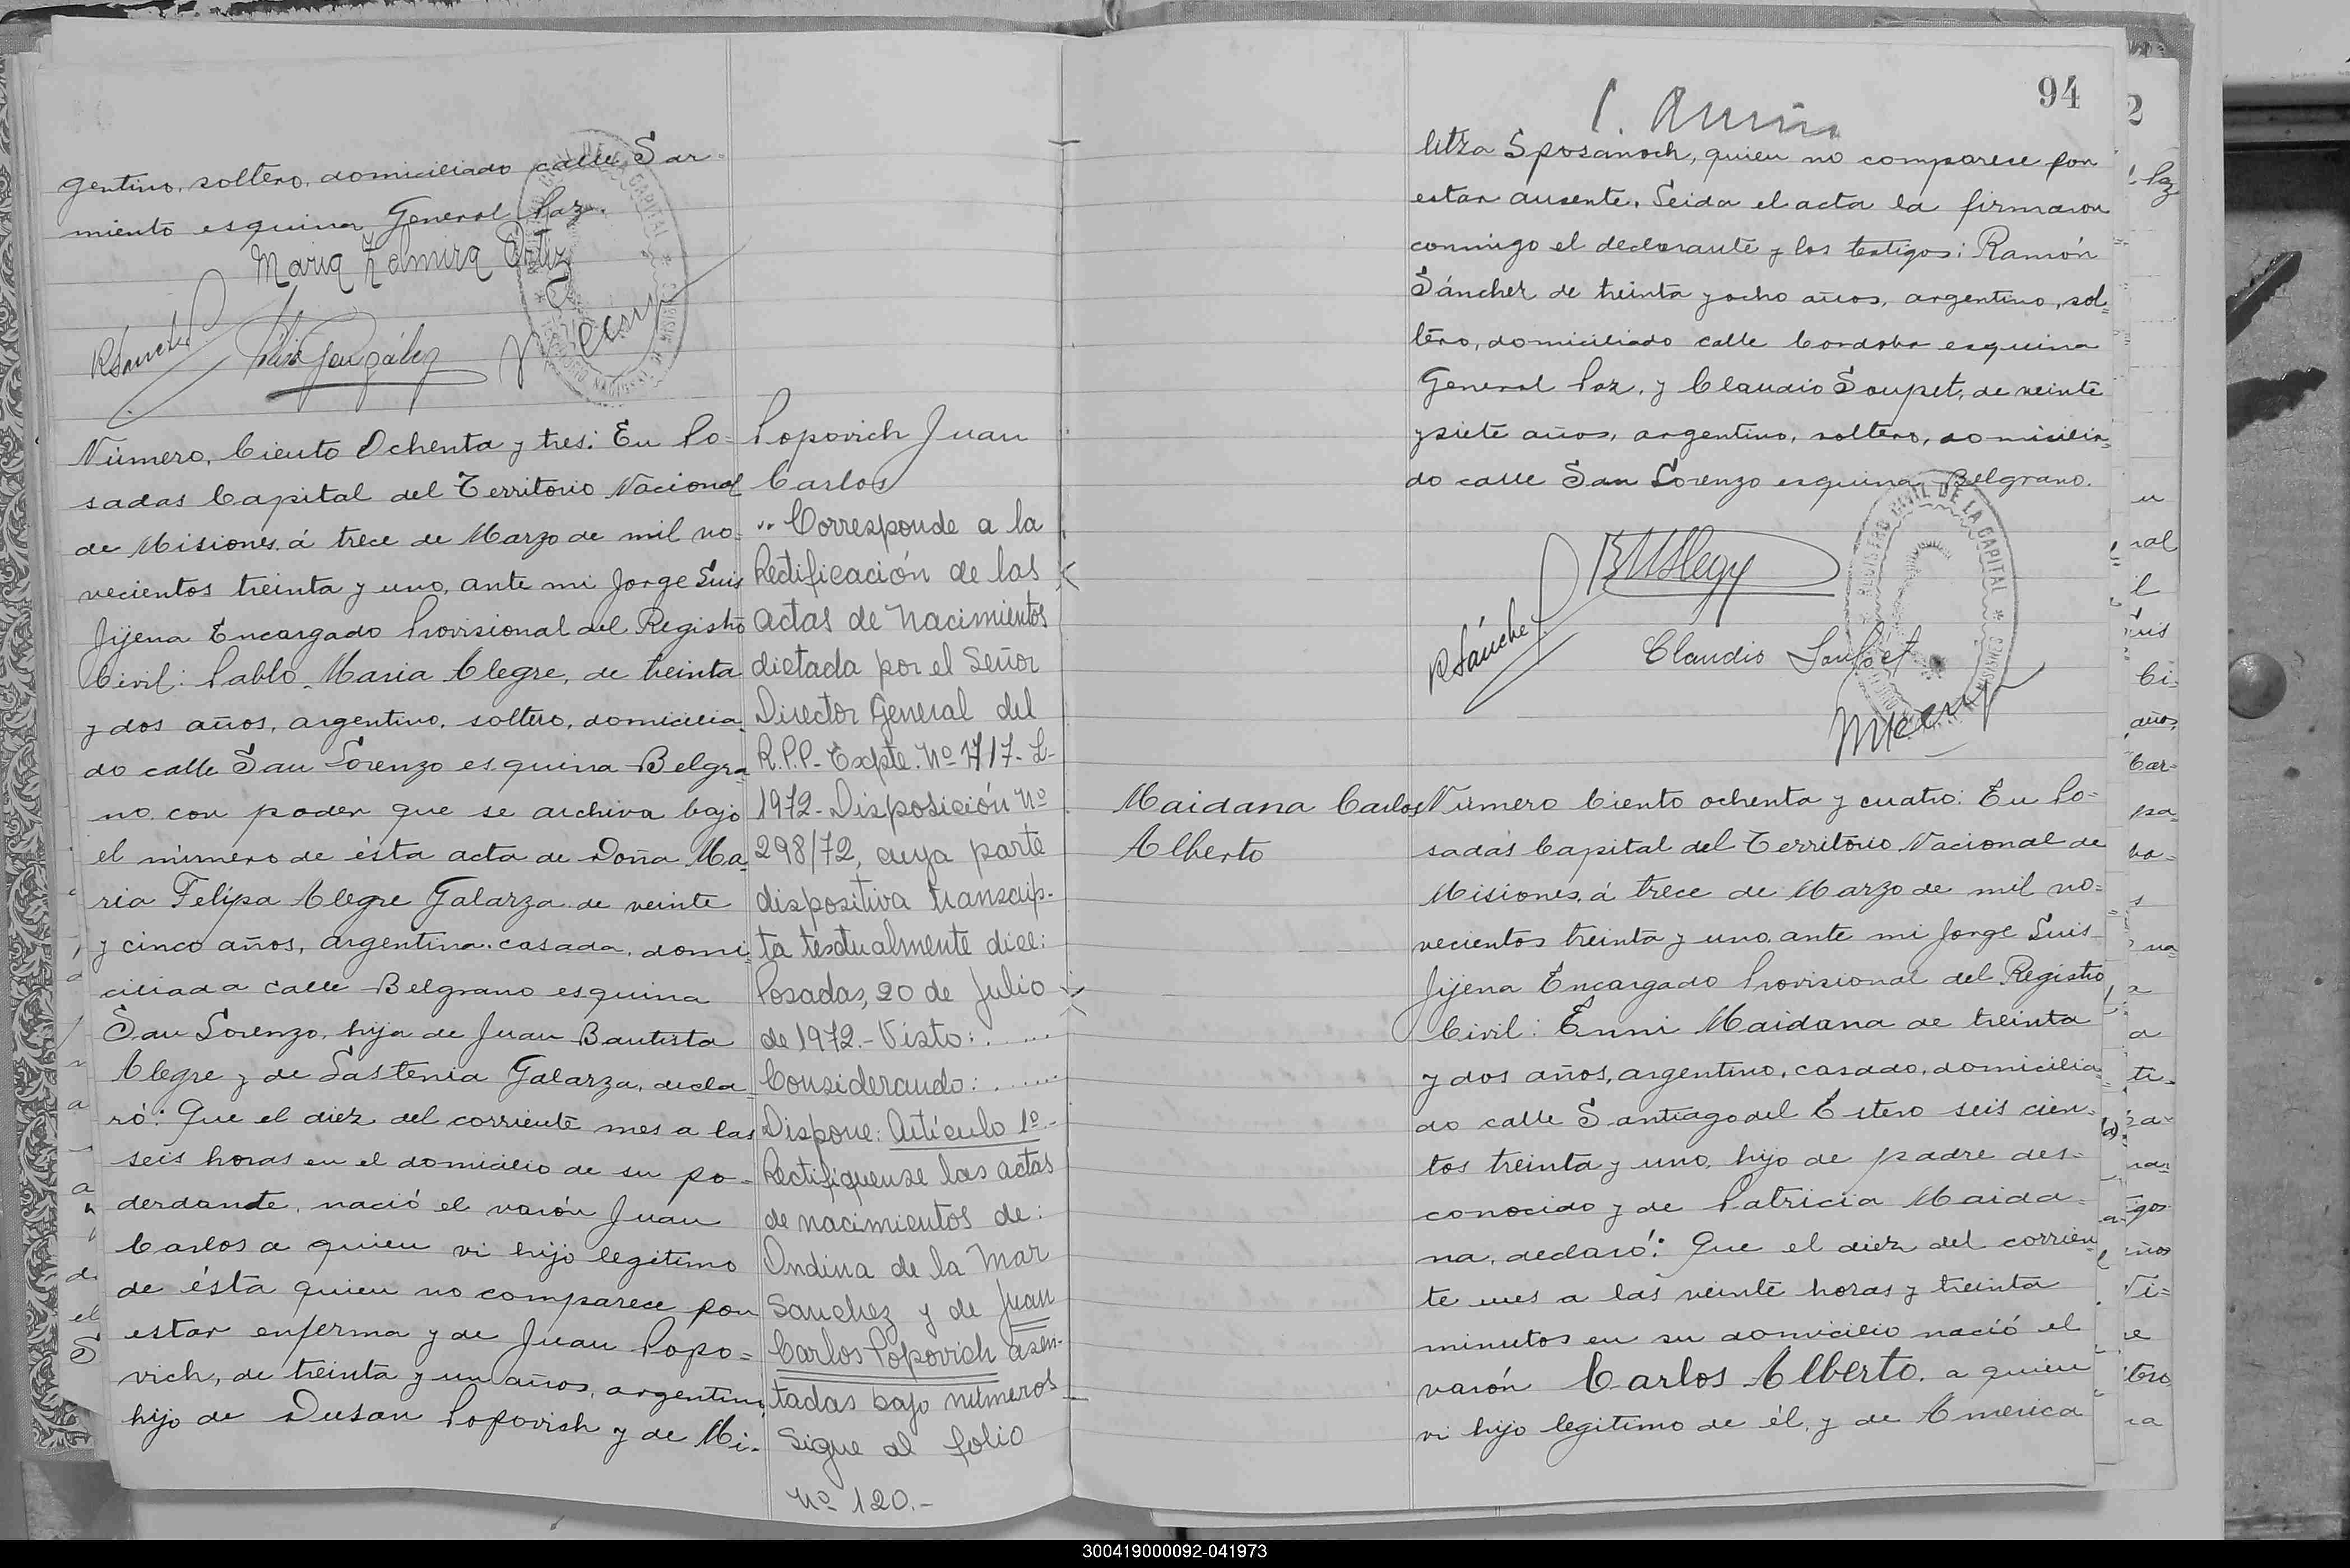 gentino, soltero, domiciliado calle Sar-
miento esquina General Paz.
Maria Zelmira Ortiz
RSánchez
Felix González
Número, Ciento Ochenta y tres: En Po-
sadas Capital del Territorio Nacional
de Misiones, á trece de Marzo de mil no-
vecientos treinta y uno, ante mi Jorge Luis
Jijena Encargado Provisional del Registro
Civil: Pablo Maria Alegre, de treinta
y dos años, argentino, soltero, domicilia-
do calle San Lorenzo esquina Belgra-
no, con poder que se archiva bajo
el número de ésta acta de Doña Ma-
ria Felipa Alegre Galarza de veinte
y cinco años, argentina, casada, domi-
ciliada calle Belgrano esquina
San Lorenzo, hija de Juan Bautista
Alegre y de Lastenia Galarza, decla-
ró: Que el diez del corriente mes a las
seis horas en el domicilio de su po-
derdante, nació el varón Juan
Carlos a quien vi hijo legitimo
de ésta quien no comparece por
estar enferma y de Juan Popo-
vich, de treinta y un años, argentino,
hijo de Dusan Popovich y de Mi-
Popovich Juan
Carlos
.. Corresponde a la
Rectificación de las
actas de Nacimientos
dictada por el Señor
Director General del
R.P.P.- Expte. Nº 1717- L-
1972- Disposición Nº
298/72, cuya parte
dispositiva transcrip-
ta textualmente dice:
Posadas, 20 de Julio
de 1972.- Visto: .....
Considerando: ......
Dispone: Artículo 1º.-
Rectifíquense las actas
de nacimientos de:
Ondina de la Mar
Sanchez y de Juan
Carlos Popovich asen-
tadas bajo números
Sigue al folio
Nº 120.-
94
litza Sposanoch, quien no comparece por
estar ausente. Leida el acta la firmaron
conmigo el declarante y los testigos: Ramón
Sánchez de treinta y ocho años, argentino, sol-
tero, domiciliado calle Cordoba esquina
General Paz, y Claudio Soupet, de veinte
y siete años, argentino, soltero, domicilia-
do calle San Lorenzo esquina Belgrano.
RSánchez
Claudio Soupet
REGISTRO CIVIL DE LA CAPITAL
Maidana Carlos
Alberto
Número Ciento ochenta y cuatro: En Po-
sadas Capital del Territorio Nacional de
Misiones, á trece de Marzo de mil no-
vecientos treinta y uno, ante mi Jorge Luis
Jijena Encargado Provisional del Registro
Civil: Enni Maidana de treinta
y dos años, argentino, casado, domicilia-
do calle Santiago del Estero seis cien-
tos treinta y uno, hijo de padre des-
conocido y de Patricia Maida-
na, declaró: Que el diez del corrien-
te mes a las veinte horas y treinta
minutos en su domicilio nació el
varón Carlos Alberto, a quien
vi hijo legitimo de él, y de America
300419000092-041973